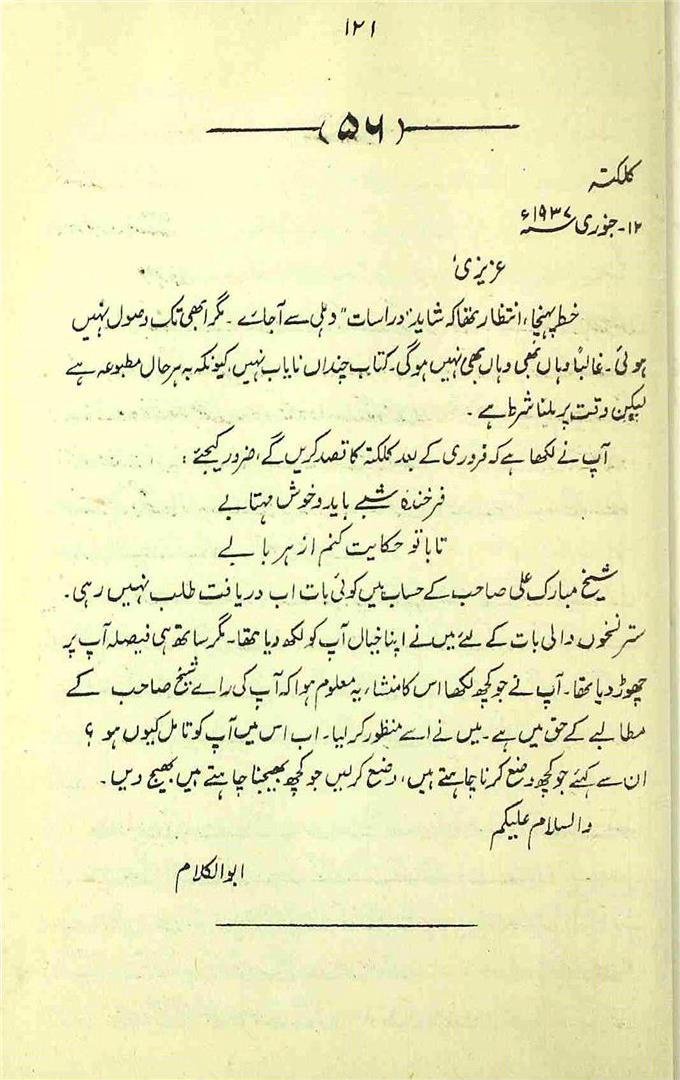 ۱۲۱
(۵۶)
کلکتہ
۱۲- جنوری ۱۹۳۷ء
عزیزی!
خط پہنچا، انتظار تھا کہ شاید "دراسات" دہلی سے آجائے۔ مگر ابھی تک وصول نہیں
ہوئی۔ غالباً وہاں بھی وہاں بھی نہیں ہوگی۔ کتاب چنداں نایاب نہیں، کیونکہ بہ ہرحال مطبوعہ ہے
لیکن وقت پر ملنا شرط ہے۔
آپ نے لکھا ہے کہ فروری کے بعد کلکتہ کا قصد کریں گے، ضرور کیجئے:
فرخندہ شبے باید و خوش مہتابے
تا با تو حکایت کنم از ہر بابے
شیخ مبارک علی صاحب کے حساب میں کوئی بات اب دریافت طلب نہیں رہی۔
ستر نسخوں والی بات کے لئے میں نے اپنا خیال آپ کو لکھ دیا تھا۔ مگر ساتھ ہی فیصلہ آپ پر
چھوڑ دیا تھا۔ آپ نے جو کچھ لکھا اس کا منشاء یہ معلوم ہوا کہ آپ کی رائے شیخ صاحب کے
مطالبے کے حق میں ہے۔ میں نے اسے منظور کر لیا۔ اب اس میں آپ کو تامل کیوں ہو؟
ان سے کہئے جو کچھ وضع کرنا چاہتے ہیں، وضع کر لیں جو کچھ بھیجنا چاہتے ہیں بھیج دیں۔
والسلام علیکم
ابوالکلام